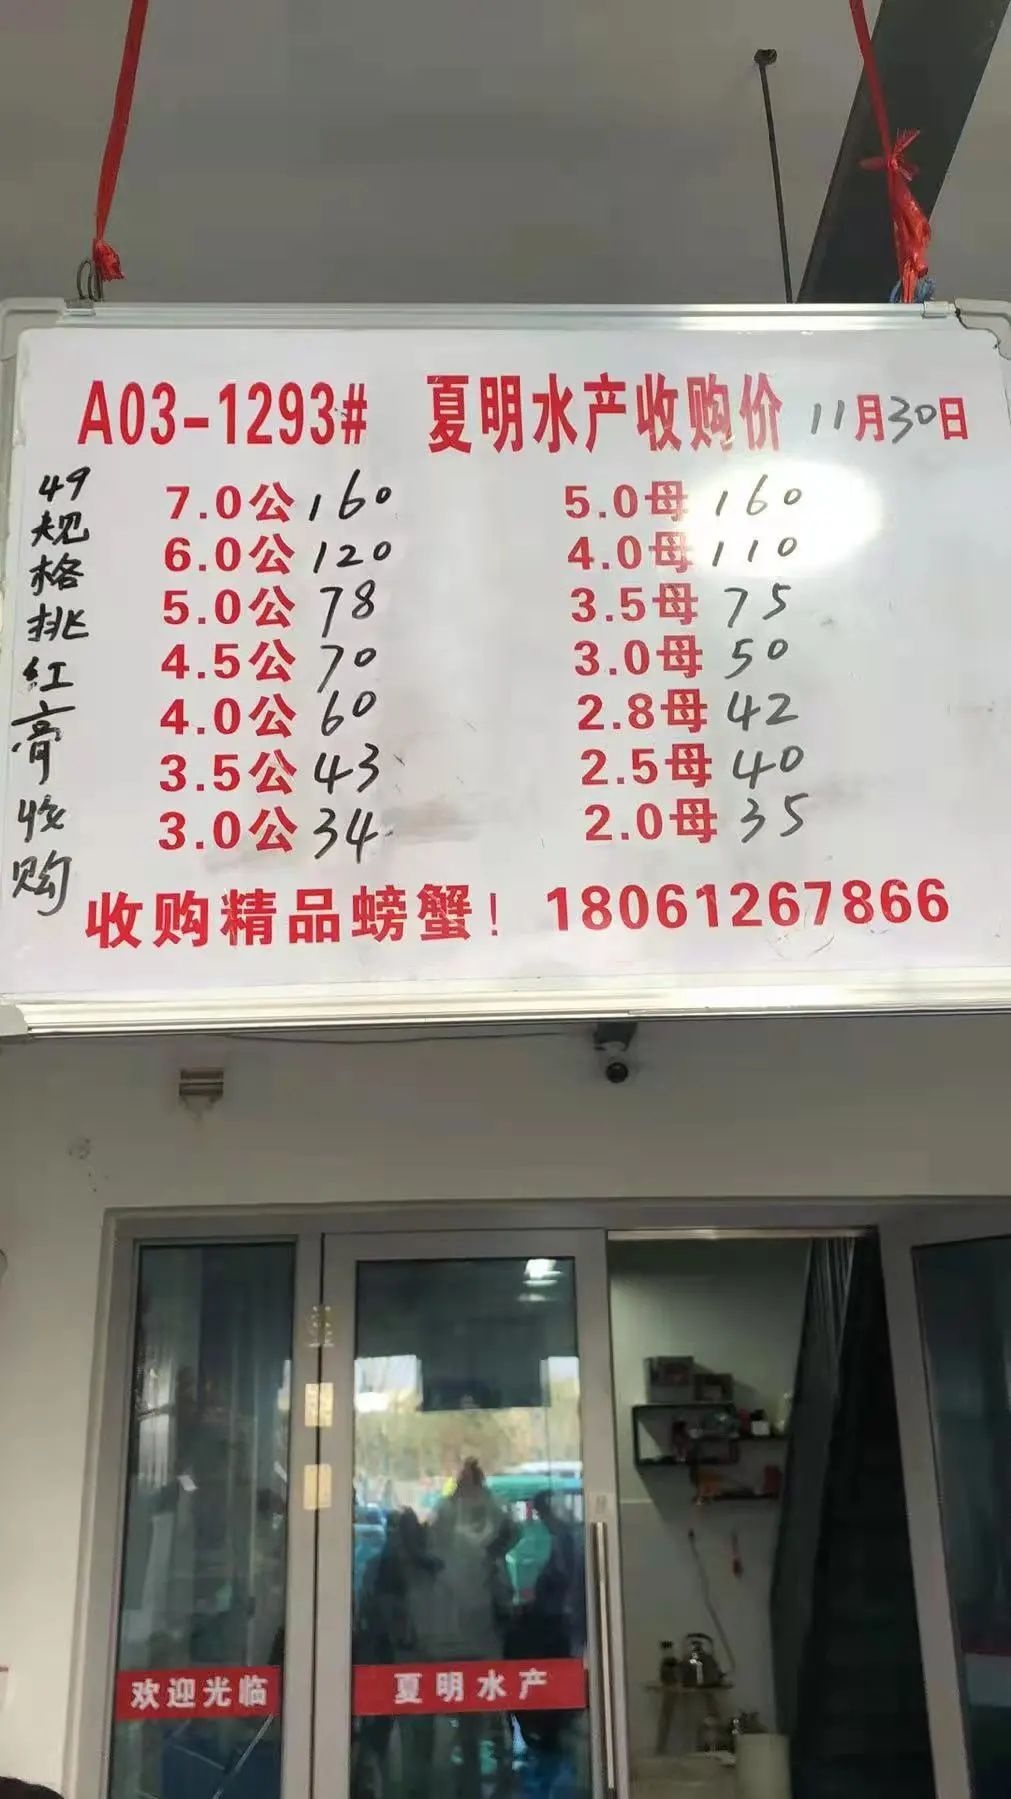 A03-1293# 夏明水产收购价 11月30日
49规格挑红膏收购
7.0公 160 5.0母 160
6.0公 120 4.0母 110
5.0公 78 3.5母 75
4.5公 70 3.0母 50
4.0公 60 2.8母 42
3.5公 43 2.5母 40
3.0公 34 2.0母 35
收购精品螃蟹！ 18061267866
欢迎光临 夏明水产